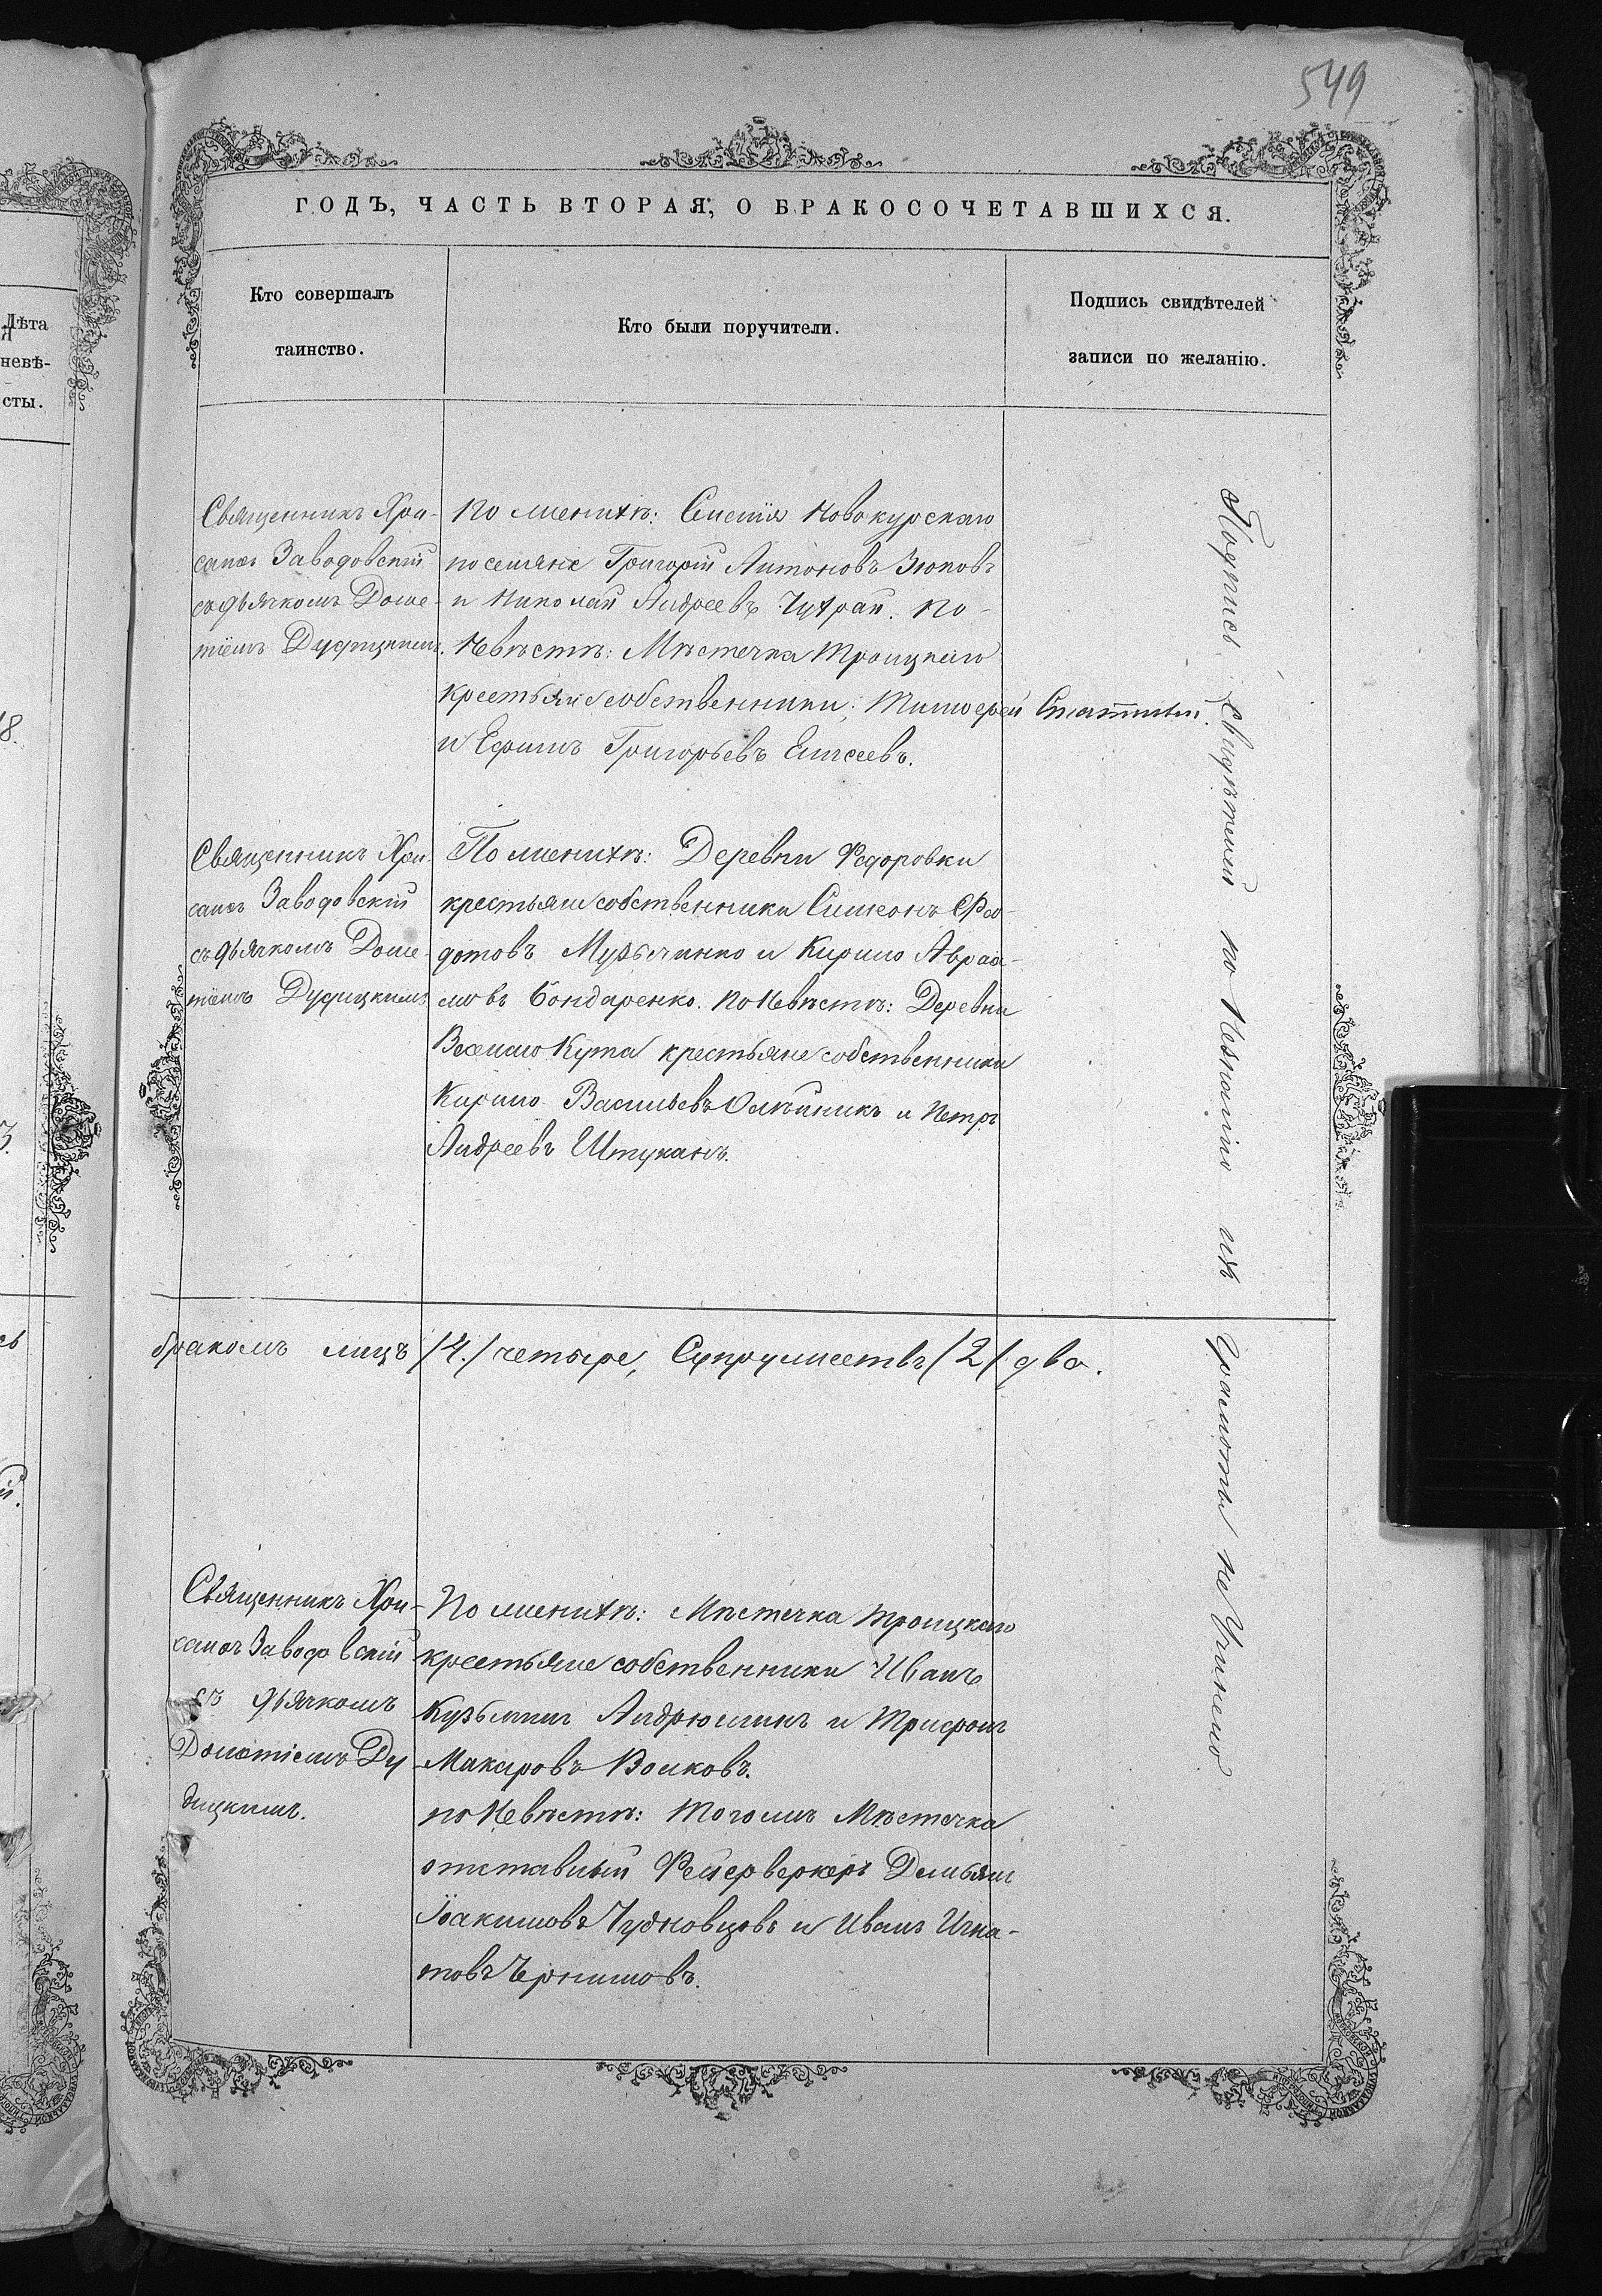 549
ГОДЪ, ЧАСТЬ ВТОРАЯ, О БРАКОСОЧЕТАВШИХСЯ.
Кто совершалъ
таинство.
Кто были поручители.
Подпись свидѣтелей
записи по желанію.
Лѣта
невѣ-
сты.
Священникъ Хри-
санѳъ Заводовскій
съ дьячкомъ Доме-
тіемъ
По женихѣ: Селенія Новокурскаго
поселяне Григорій Антоновъ Зюковъ
и Николай Андреевъ Чухрай. по
Невѣстѣ: Мѣстечка Троицкаго
крестьяне собственники: Тимофей
и Ефимъ Григорьевъ Елисеевъ.
Священникъ Хри-
санѳъ Заводовскій
съ дьячкомъ Доме-
тіемъ
По женихѣ: Деревни Федоровки
крестьяне собственники Симеонъ Фео-
дотовъ и Кирило Авраа-
мовъ Бондаренко. по Невѣстѣ: Деревни
Веселаго Кута крестьяне собственники
Кирило Васильевъ Олѣйникъ и Петръ
Андреевъ Штуканъ.
бракомъ лицъ /4./ четыре, Супружествъ /2/ два.
Священникъ Хри-
санѳъ Заводовскій
съ дьячкомъ
Дометіемъ Ду
дицкимъ.
По женихѣ: Мѣстечка Троицкаго
крестьяне собственники Иванъ
Кузьминъ и Трифонъ
Макаровъ Волковъ.
по Невѣстѣ: Тогожъ Мѣстечка
отставный Фейерверкеръ Демьянъ
Іоакимовъ Чудновцовъ и Иванъ Игна-
товъ Чернишовъ.
Подписи Свидѣтелей по Незнанію ихъ Грамоты не Учинено